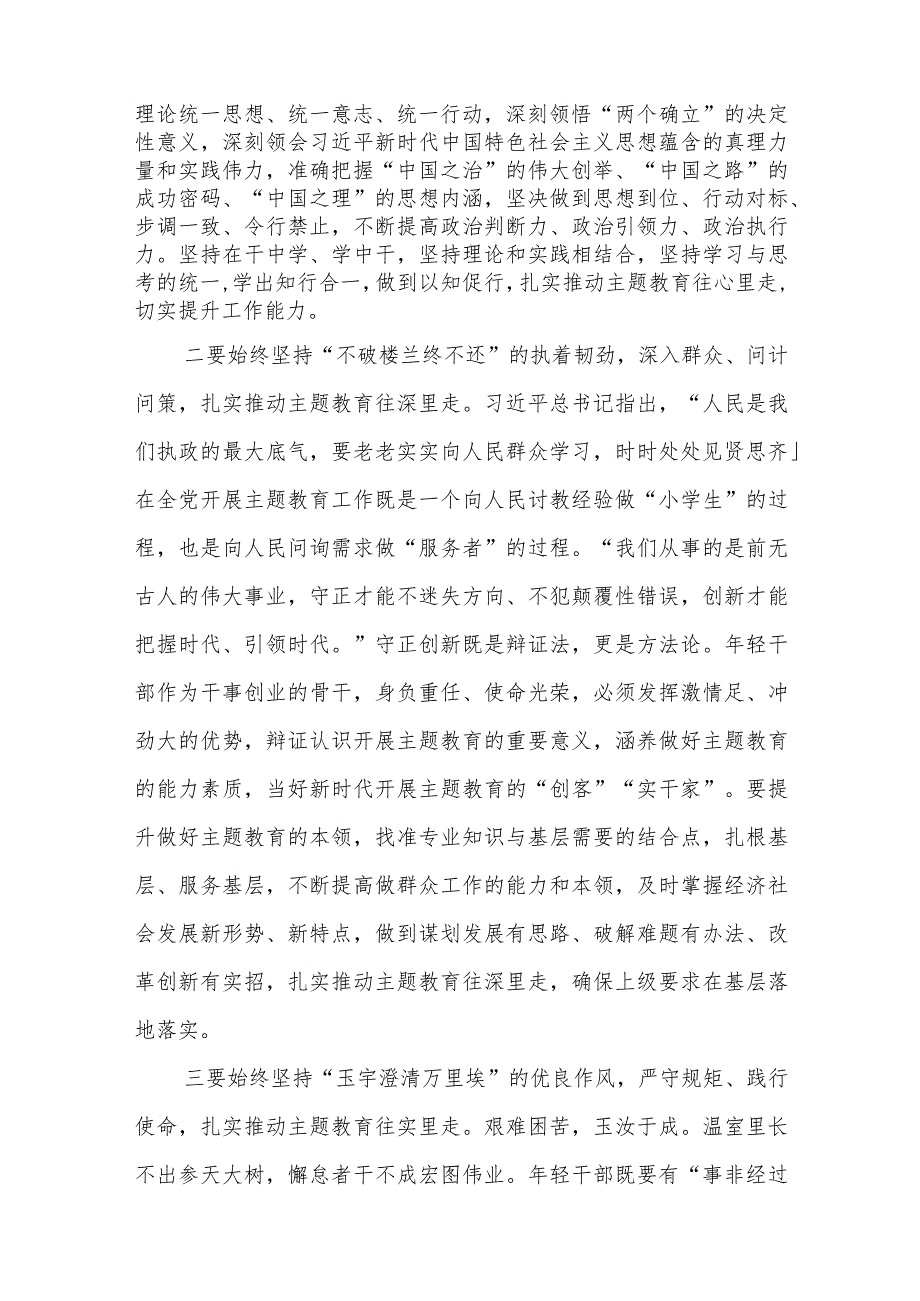 理论统一思想、统一意志、统一行动，深刻领悟“两个确立”的决定
性意义，深刻领会习近平新时代中国特色社会主义思想蕴含的真理力
量和实践伟力，准确把握“中国之治”的伟大创举、“中国之路”的
成功密码、“中国之理”的思想内涵，坚决做到思想到位、行动对标、
步调一致、令行禁止，不断提高政治判断力、政治引领力、政治执行
力。坚持在干中学、学中干，坚持理论和实践相结合，坚持学习与思
考的统一,学出知行合一,做到以知促行,扎实推动主题教育往心里走,
切实提升工作能力。
二要始终坚持“不破楼兰终不还”的执着韧劲，深入群众、问计
问策，扎实推动主题教育往深里走。习近平总书记指出，“人民是我
们执政的最大底气，要老老实实向人民群众学习，时时处处见贤思齐」
在全党开展主题教育工作既是一个向人民讨教经验做“小学生”的过
程，也是向人民问询需求做“服务者”的过程。“我们从事的是前无
古人的伟大事业，守正才能不迷失方向、不犯颠覆性错误，创新才能
把握时代、引领时代。”守正创新既是辩证法，更是方法论。年轻干
部作为干事创业的骨干，身负重任、使命光荣，必须发挥激情足、冲
劲大的优势，辩证认识开展主题教育的重要意义，涵养做好主题教育
的能力素质，当好新时代开展主题教育的“创客”“实干家”。要提
升做好主题教育的本领，找准专业知识与基层需要的结合点，扎根基
层、服务基层，不断提高做群众工作的能力和本领，及时掌握经济社
会发展新形势、新特点，做到谋划发展有思路、破解难题有办法、改
革创新有实招，扎实推动主题教育往深里走，确保上级要求在基层落
地落实。
三要始终坚持“玉宇澄清万里埃”的优良作风，严守规矩、践行
使命，扎实推动主题教育往实里走。艰难困苦，玉汝于成。温室里长
不出参天大树，懈怠者干不成宏图伟业。年轻干部既要有“事非经过